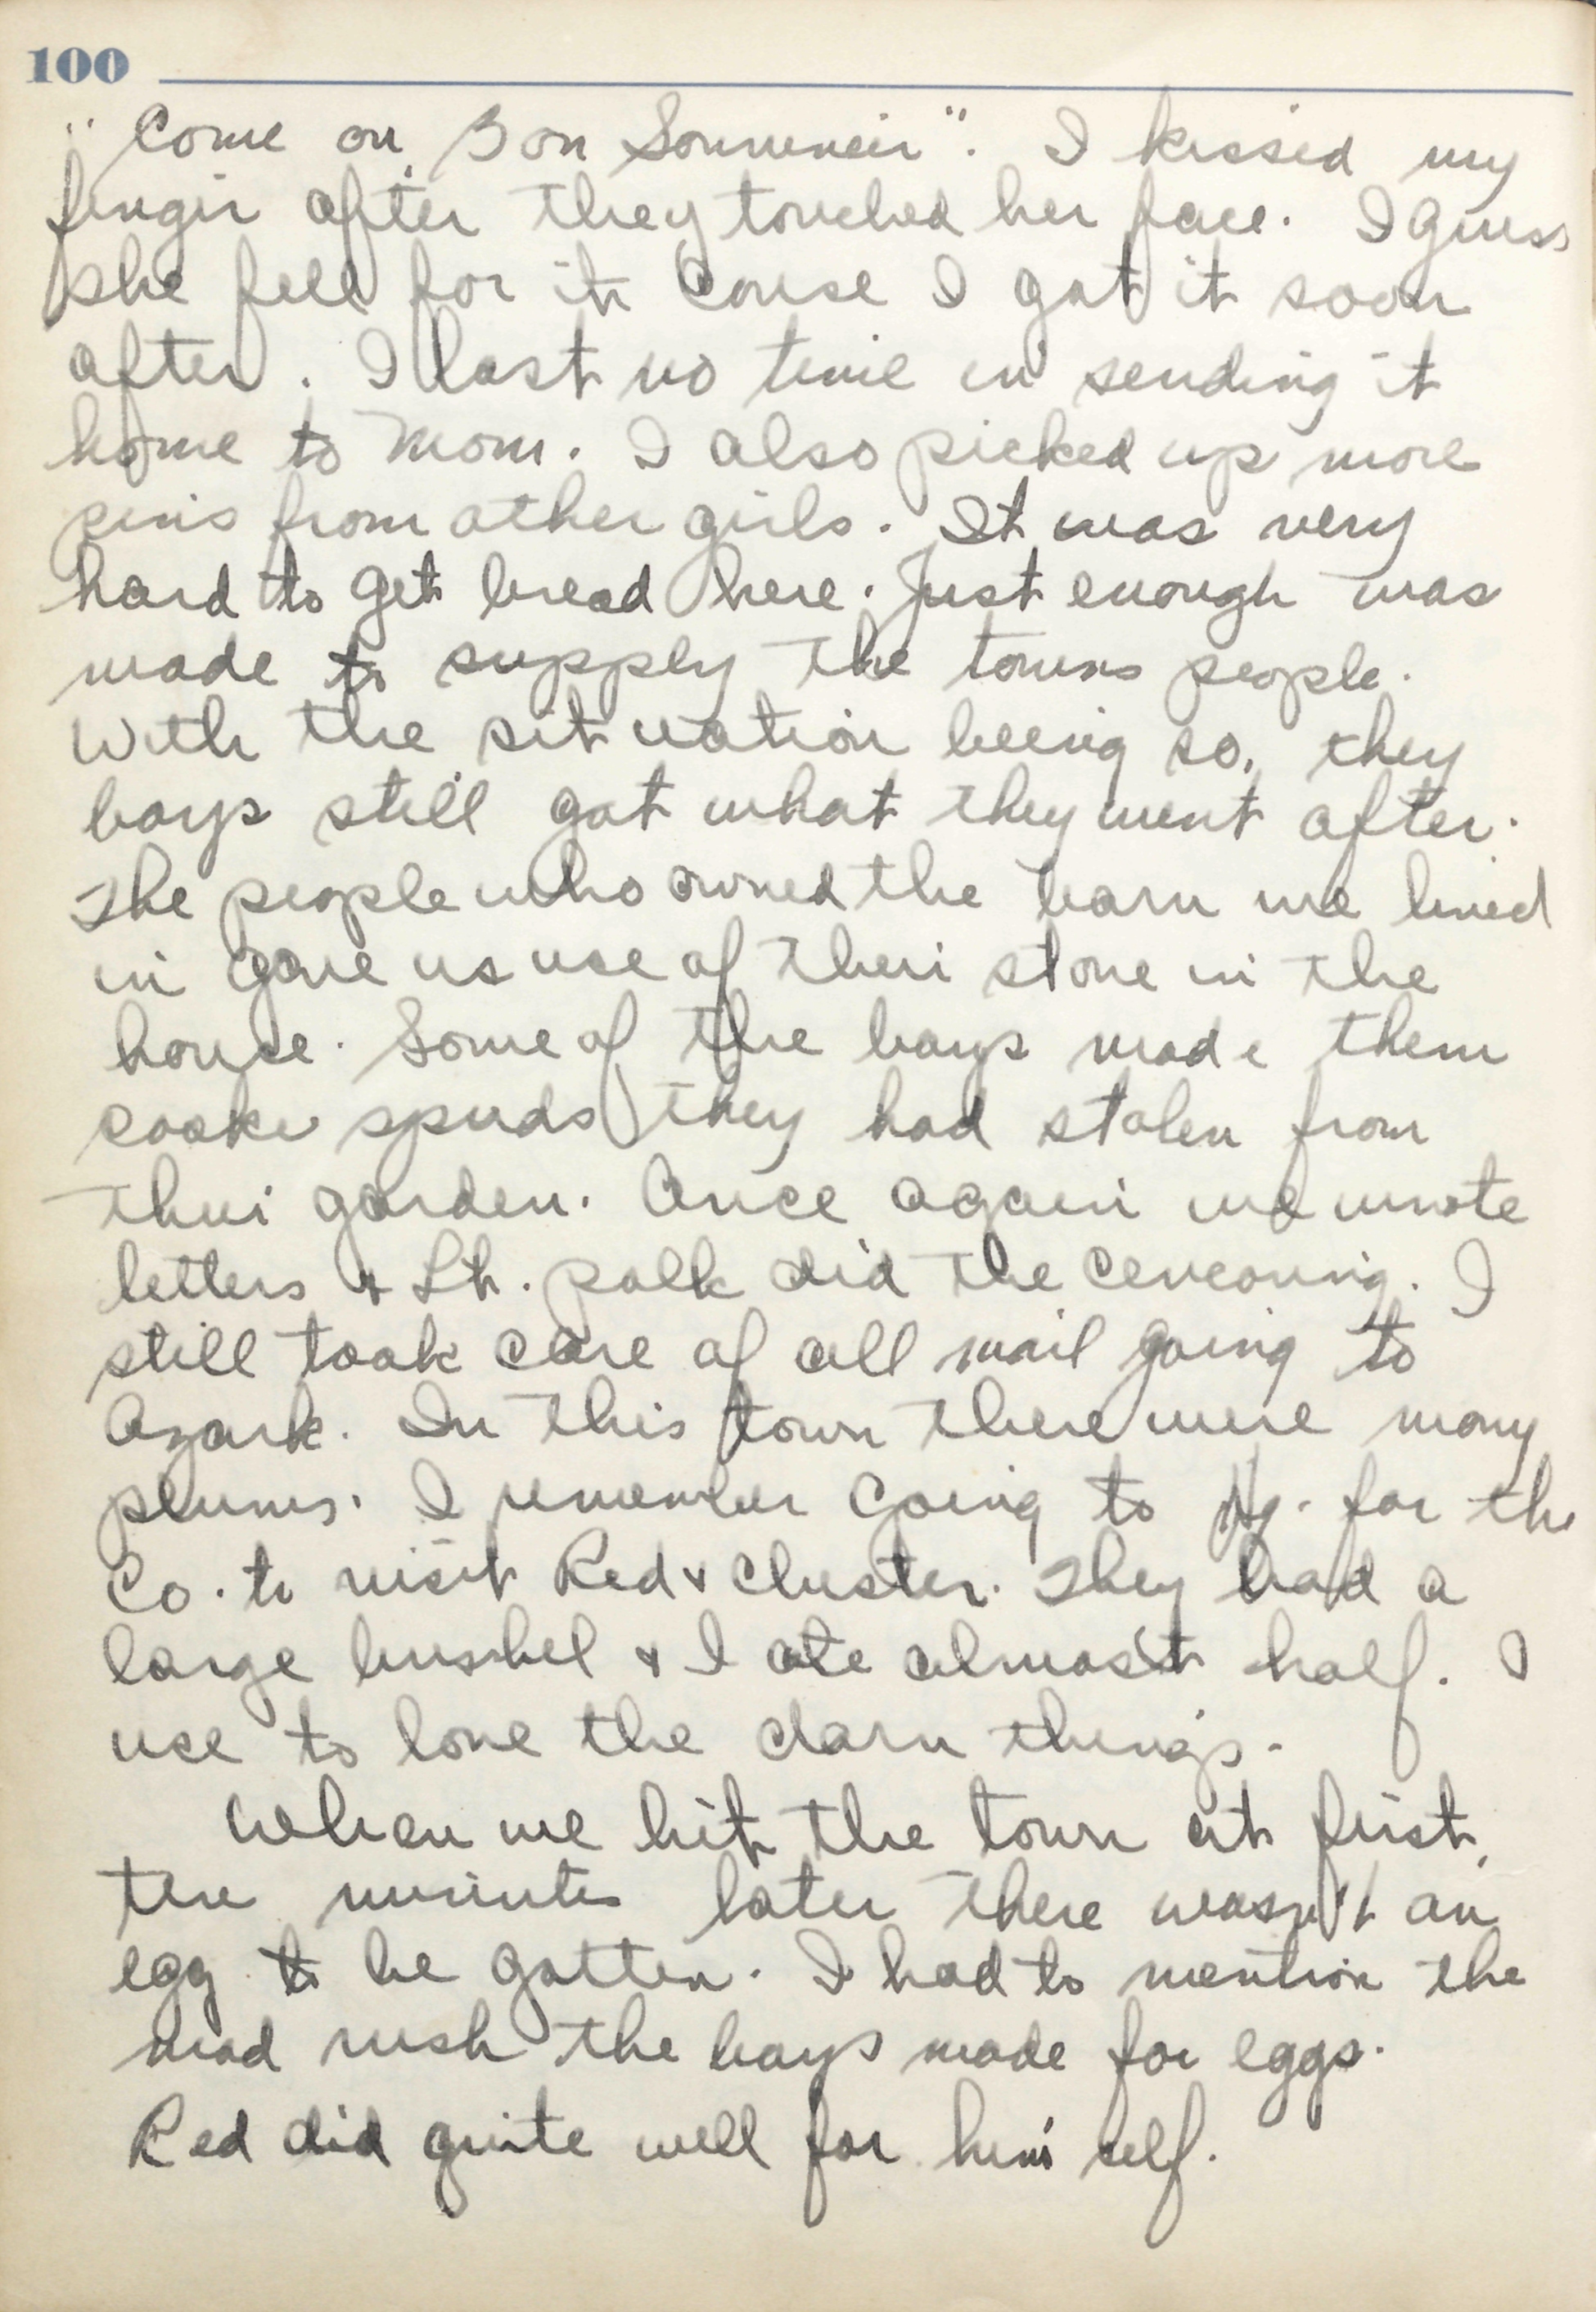 100
"Come on, Bon Souvuneir". I kissed my
finger after they touched her face. I guess
she fell for it cause I got it soon
after. I lost no time in sending it
home to Mom. I also picked up more
pins from other girls. It was very
hard to get bread here. Just enough was
made to supply the towns people.
With the situation being so, they
boys still got what they went after.
The people who owned the barn we lived
in gave us use of their stove in the
house. Some of the boys made them
cooke spuds they had stolen from
their garden. Once again we wrote
letters & Lt. Polk did the cencoring. I
still took care of all mail going to
Ozark. In this town there were many
plums. I remember going to Hq. for the
Co. to visit Red & Cluster. They had a
large bushel & I ate almost half. I
use to love the darn things.
When we hit the town at first,
ten minutes later there wasn't an
egg to be gotten. I had to mention the
mad rush the boys made for eggs.
Red did quite well for him self.